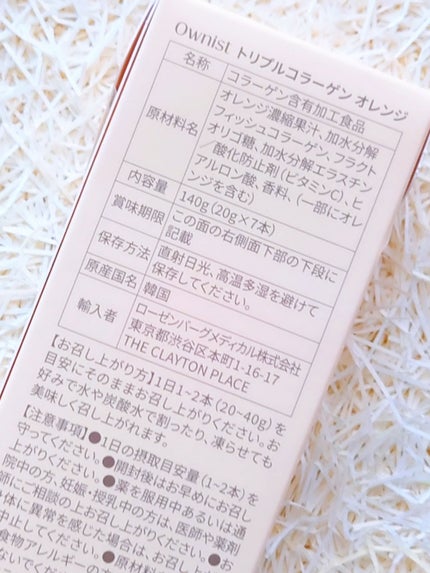 Ownist トリプルコラーゲン オレンジ
名称
コラーゲン含有加工食品
原材料名
オレンジ濃縮果汁、加水分解
フィッシュコラーゲン、フラクト
オリゴ糖、加水分解エラスチン
/酸化防止剤(ビタミンC)、ヒ
アルロン酸、香料、(一部にオレ
ンジを含む)
内容量
140g(20g×7本)
賞味期限
この面の右側面下部の下段に
記載
保存方法
直射日光、高温多湿を避けて
保存してください。
原産国名
韓国
輸入者
ローゼンバーグメディカル株式会社
東京都渋谷区本町1-16-17
THE CLAYTON PLACE
【お召し上がり方】1日1~2本(20~40g)を
目安にそのままお召し上がりください。お
好みで水や炭酸水で割ったり、凍らせても
美味しく召し上がれます。
【注意事項】●1日の摂取目安量(1~2本)を
守ってください。●開封後はお早めにお召し
上がりください。●薬を服用中あるいは通
院中の方、妊娠・授乳中の方は、医師や薬剤
師にご相談の上お召し上がりください。●お
体に異常を感じた場合は、お召し
止してください。●原材料
食物アレルギーの
ないでくだ